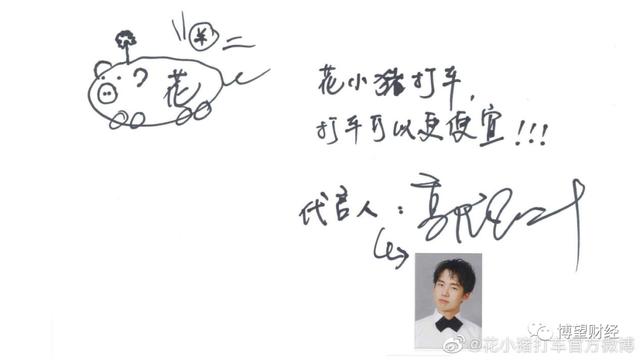 ¥
花
花小猪打车,
打车可以更便宜!!!
代言人:
博望财经
@花小猪打车官方微博